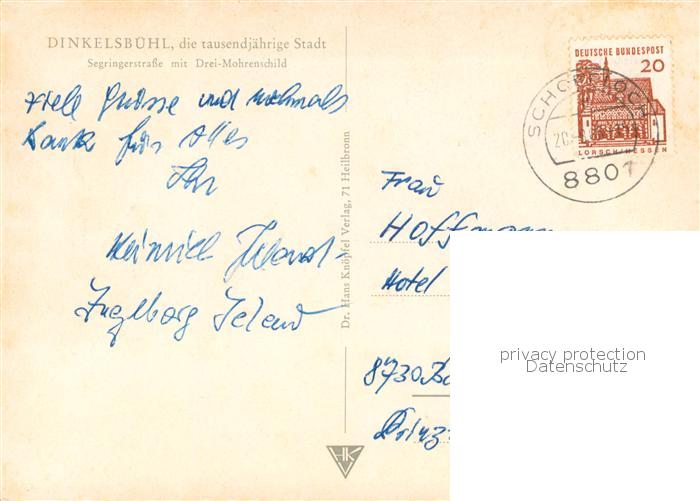 DINKELSBÜHL, die tausendjährige Stadt
Segringerstraße mit Drei-Mohrenschild
viele Grüsse und nochmals
Dank für Alles
Ihr
Heinrich
Ingeborg
Dr. Hans Knöpfel Verlag, 71 Heilbronn
HK
DEUTSCHE BUNDESPOST
20
LORSCH/HESSEN
8801
Frau
Hoffmann
Hotel
8730 Ba
Prinz
privacy protection
Datenschutz